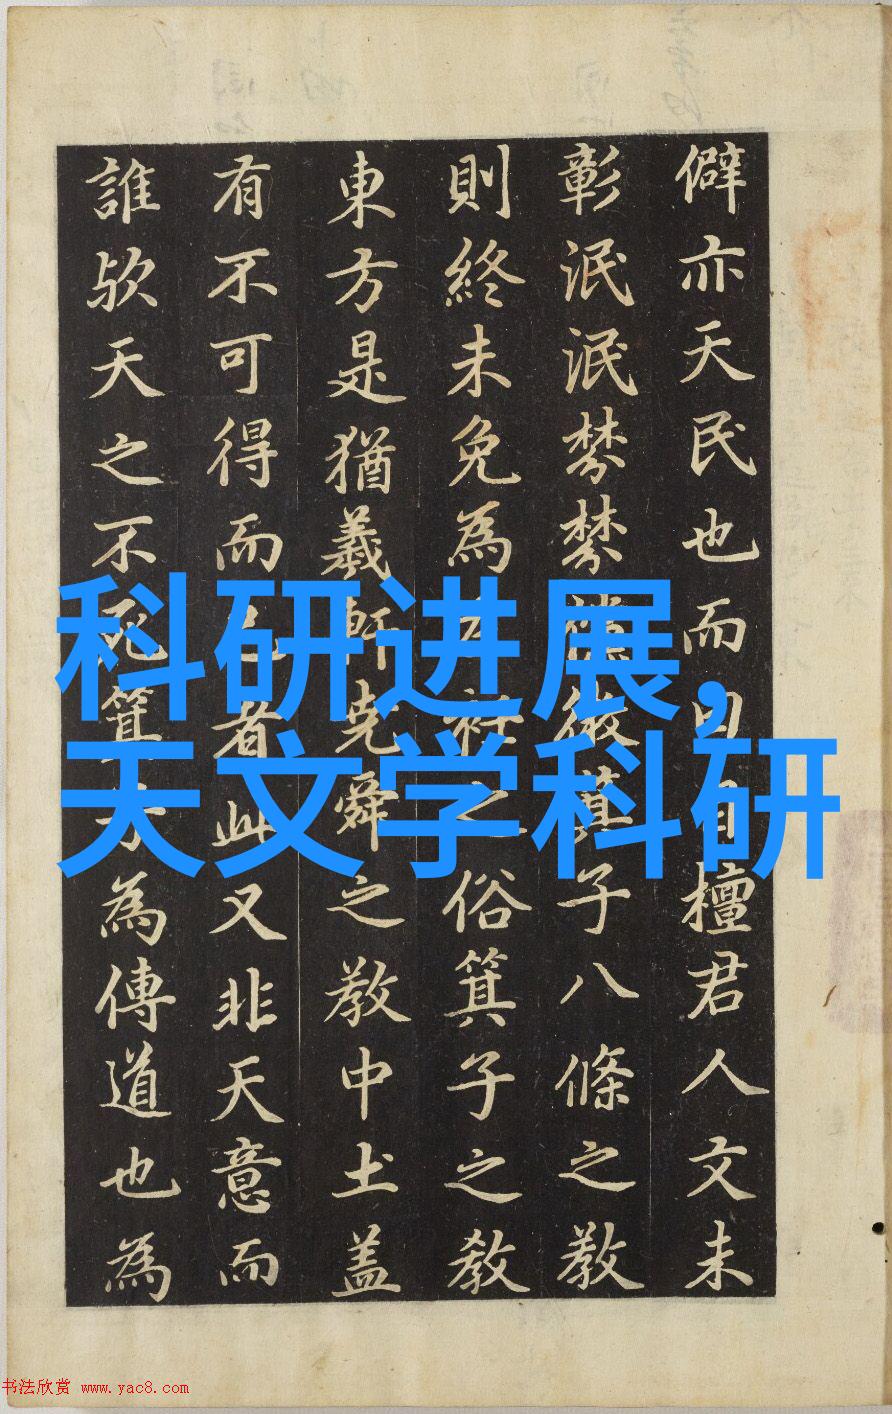 科研进展,
天文学科研
僻亦天民也而曰自檀君人文未
彰泯泯棼棼微箕子八條之教
則終未免為左衽之俗箕子之教
東方是猶羲軒堯舜之教中土盖
有不可得而已者此又非天意而
誰歟天之不死箕子為傳道也為
书法欣赏 www.yac8.com